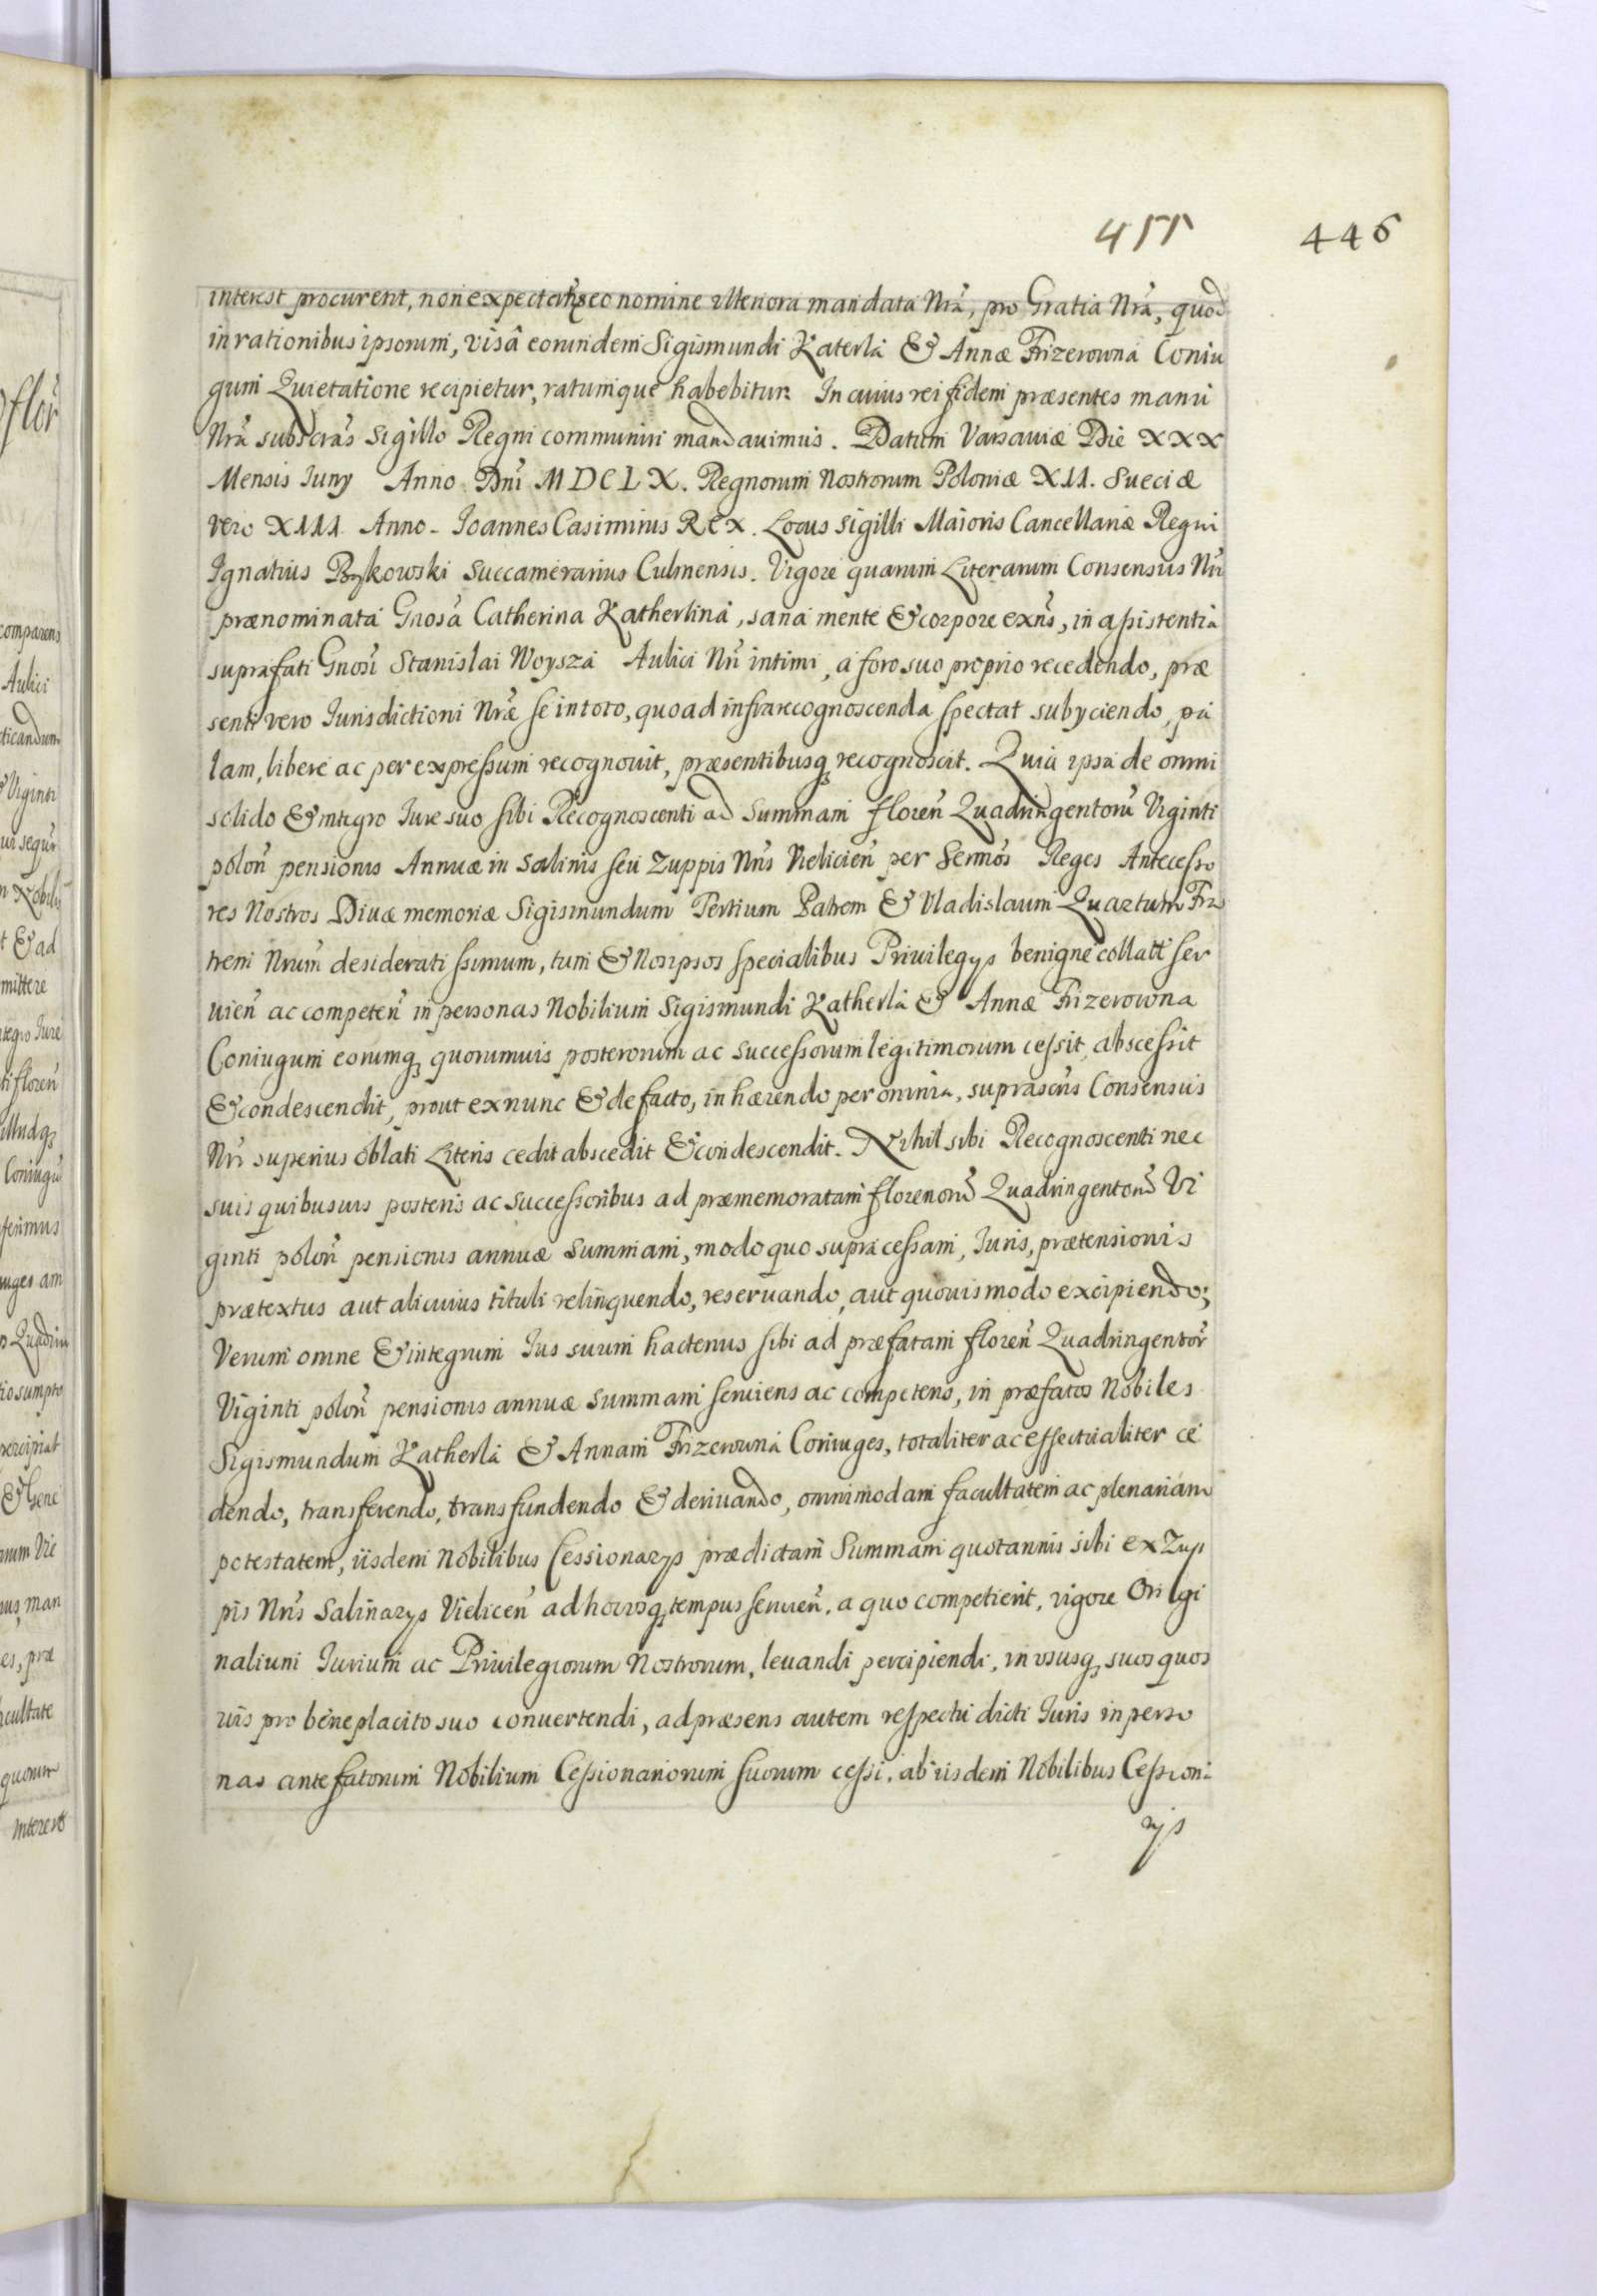 455 446
interest procurent, non expectatis eo nomine ulteriora mandata Nrã, pro Gratia Nrã, quod
in rationibus ipsorum, visâ eorundem Sigismundi Katerla & Annæ Frizerowna Coniu
gum Quietatione recipietur, ratumque habebitur. In cuius rei fidem præsentes manu
Nrã subscrãs Sigillo Regni communiri mandavimus. Datum Varsaviæ Die XXX
Mensis Juny Anno Dñi MDCLX. Regnorum Nostrorum Poloniæ XII. Sueciæ
vero XIII Anno - Joannes Casimirus Rex. Locus Sigilli Maioris Cancellariæ Regni
Ignatius Bąkowski Succamerarius Culmensis. Vigore quarum Literarum Consensus Nri
prænominata Gnosa Catherina Katherlina, sana mente & corpore exñs, in assistentia
suprafati Gnosi Stanislai Woysza Aulici Nri intimi, a foro suo proprio recedendo, præ
senti vero Jurisdictioni Nræ se in toto, quo ad infra recognoscenda spectat subyciendo, pa
lam, libere ac per expressum recognovit, præsentibusq recognoscit. Quia ipsa de omni
solido & integro Jure suo sibi Recognoscenti ad Summam floreñ Quadringentorũ Viginti
poloñ pensionis Annuæ in Salinis seu Zuppis Nris Vielicieñ per Sermõs Reges Antecesso
res Nostros Divæ memoriæ Sigismundum Tertium Patrem & Vladislaum Quartum Fra
trem Nrum desideratissimum, tum & Nos ipsos specialibus Privilegys benigne collatt ser
vieñ ac competeñ in personas Nobilium Sigismundi Katherla & Annæ Frizerowna
Coniugum eorumq quorumvis posterorum ac Successorum legitimorum cessit, abscessit
& condescendit, prout ex nunc & de facto, inhærendo per omnia, suprascris Consensus
Nri superius oblati Literis cedit abscedit & condescendit. Nihil sibi Recognoscenti nec
suis quibusvis posteris ac Successoribus ad præmemoratam florenorũ Quadringentorũ Vi
ginti poloñ pensionis annuæ Summam, modo quo supra cessam, Juris, prætensionis
prætextus aut alicuius tituli relinquendo, reservando, aut quovis modo excipiendo;
Verum omne & integrum Jus suum hactenus sibi ad præfatam floreñ Quadringentor̃
Viginti poloñ pensionis annuæ Summam serviens ac competens, in præfatos Nobiles
Sigismundum Katherla & Annam Frizerowna Coniuges, totaliter ac effectualiter ce
dendo, transferendo, transfundendo & derivando, omnimodam facultatem ac plenariam
potestatem, iisdem Nobilibus Cessionarys prædictam Summam quotannis sibi ex Zup
pis Nris Salinarys Vielicen̄ ad hocusq tempus servieñ, a quo competierit, vigore Origi
nalium Jurium ac Privilegiorum Nostrorum, levandi percipiendi, in ususq suos quos
vis pro beneplacito suo convertendi, ad præsens autem respectu dicti Juris in perso
nas antefatorum Nobilium Cessionariorum suorum cessi, ab iisdem Nobilibus Cessiona
rys